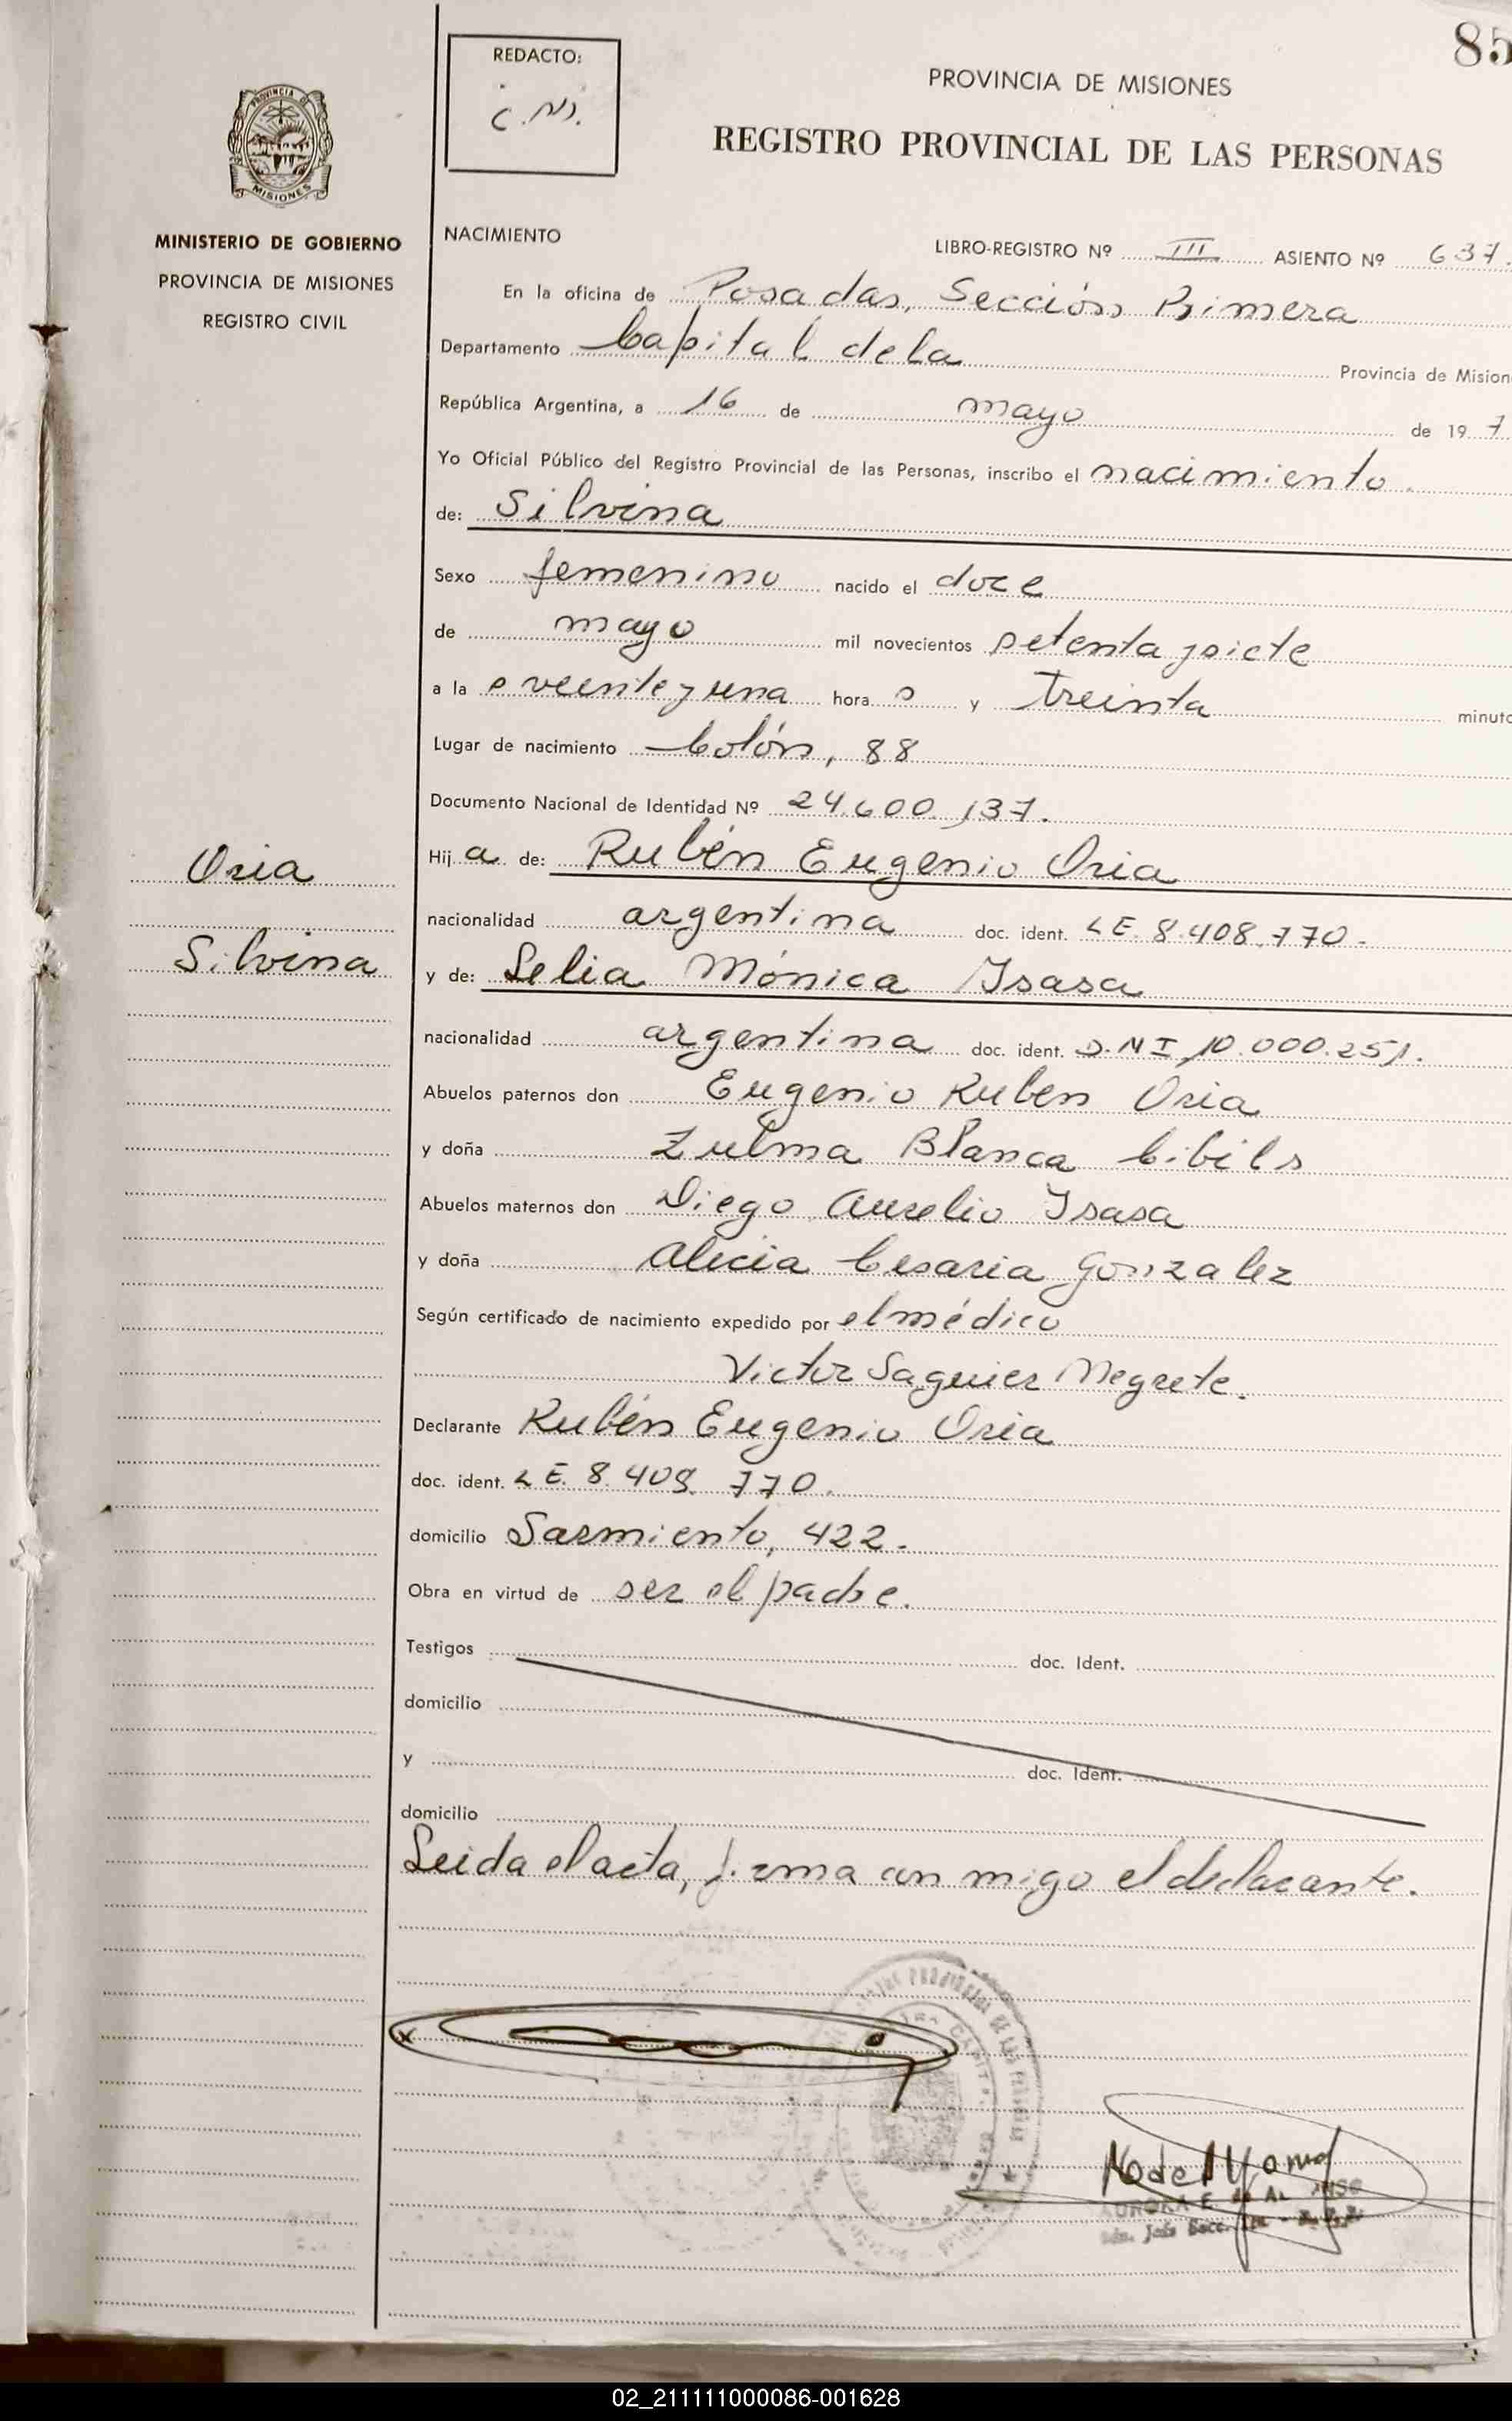 85
REDACTO:
C.N.
PROVINCIA DE MISIONES
REGISTRO PROVINCIAL DE LAS PERSONAS
PROVINCIA DE
MISIONES
MINISTERIO DE GOBIERNO
PROVINCIA DE MISIONES
REGISTRO CIVIL
NACIMIENTO
LIBRO-REGISTRO Nº III ASIENTO Nº 637.
En la oficina de Posadas, Sección Primera
Departamento Capital de la Provincia de Mision
República Argentina, a 16 de mayo de 19 7
Yo Oficial Público del Registro Provincial de las Personas, inscribo el nacimiento.
de: Silvina
Sexo femenino nacido el doce
de mayo mil novecientos setenta y siete
a la s veinte y una hora s y treinta minuto
Lugar de nacimiento Colón, 88
Documento Nacional de Identidad Nº 24.600.137.
Oria
Silvina
Hij a de: Rubén Eugenio Oria
nacionalidad argentina doc. ident. LE. 8.408.770.-
y de: Lelia Mónica Isasa
nacionalidad argentina doc. ident. D.N I 10.000.251.
Abuelos paternos don Eugenio Ruben Oria
y doña Zulma Blanca Cibils
Abuelos maternos don Diego Aurelio Isasa
y doña Alicia Cesaria Gonzalez
Según certificado de nacimiento expedido por el médico
Victor Saguier Negrete.
Declarante Rubén Eugenio Oria
doc. ident. LE. 8.408.770.
domicilio Sarmiento, 422.-
Obra en virtud de ser el padre.
Testigos doc. Ident.
domicilio
y doc. Ident.
domicilio
Leida el acta, firma con migo el declarante.
x
AURORA E.
02_211111000086-001628